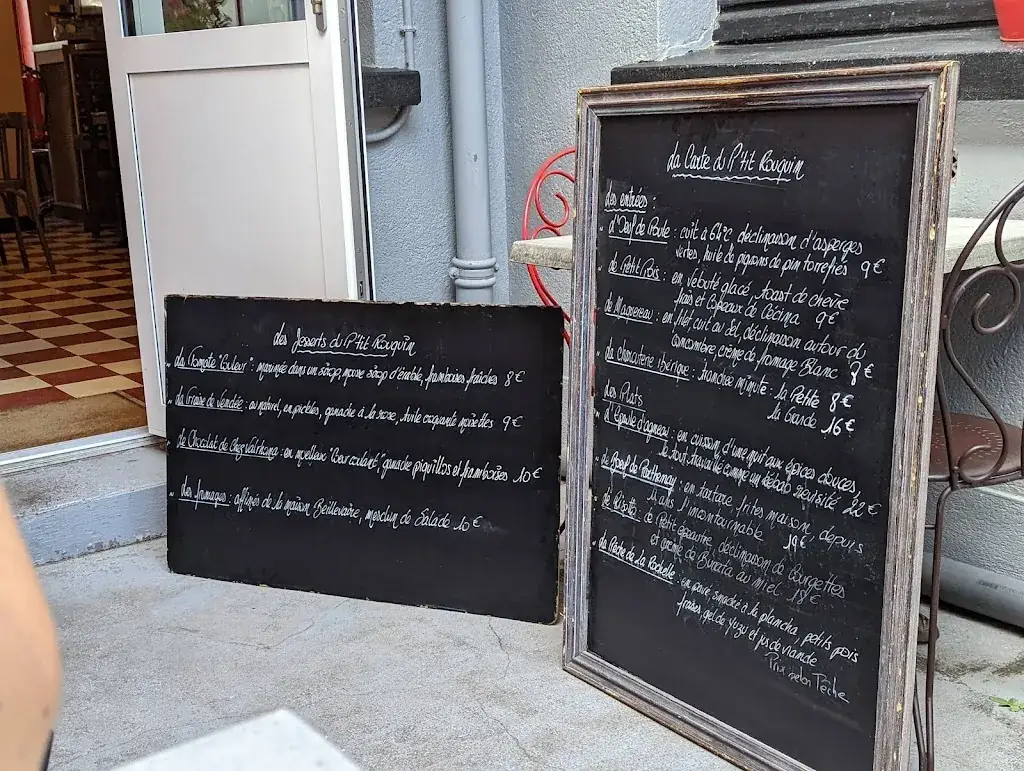 Les Desserts du P'tit Rouquin
La Tomate "Couleur" : marinée dans un sirop, mousse sirop d'érable, framboises fraîches 8€
La Fraise de Vendée : au naturel, en pickles, ganache à la rose, tuile craquante noisettes 9€
Le Chocolat de chez Valrhona : en moelleux "Coeur coulant", ganache piquillos et framboises 10€
Les fromages : affinés de la maison Beillevaire, mesclun de Salade 10€
La Carte du P'tit Rouquin
Les entrées :
L'Oeuf de Poule : cuit à 64°C, déclinaison d'asperges
vertes, huile de pignons de pin torréfiés 9€
Le Petit Pois : en velouté glacé, toast de chèvre
frais et Copeaux de Cécina 9€
Le Maquereau : en filet cuit au sel, déclinaison autour du
concombre, crème de fromage Blanc 9€
La charcuterie Ibérique : tranchée minute : la Petite 8€
la Grande 16€
Les Plats
L'épaule d'agneau : en cuisson d'une nuit aux épices douces,
le tout travaillé comme un kebab revisité 22€
Le Boeuf de Parthenay : en tartare, frites maison, depuis
11 ans l'incontournable 19€
Le Risotto : de Petit épeautre, déclinaison de Courgettes
et crème de Burrata au miel 18€
La Pêche de La Rochelle : en pavé, snacké à la plancha, petits pois
fraises, gel de yuzu et jus de viande
Prix selon Pêche